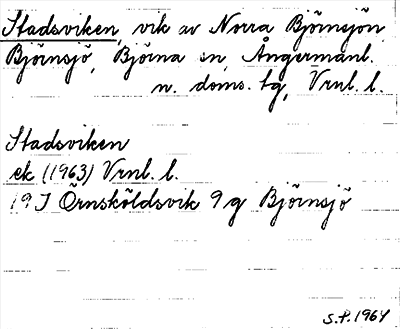 Stadsviken, vik av Norra Björnsjön
Björnsjö, Björna sn, Ångermanl.
n. doms. tg, Vrnl. l.
Stadsviken
ek (1963) Vrnl. l.
19 I Örnsköldsvik 9 g Björnsjö
S.P. 1964